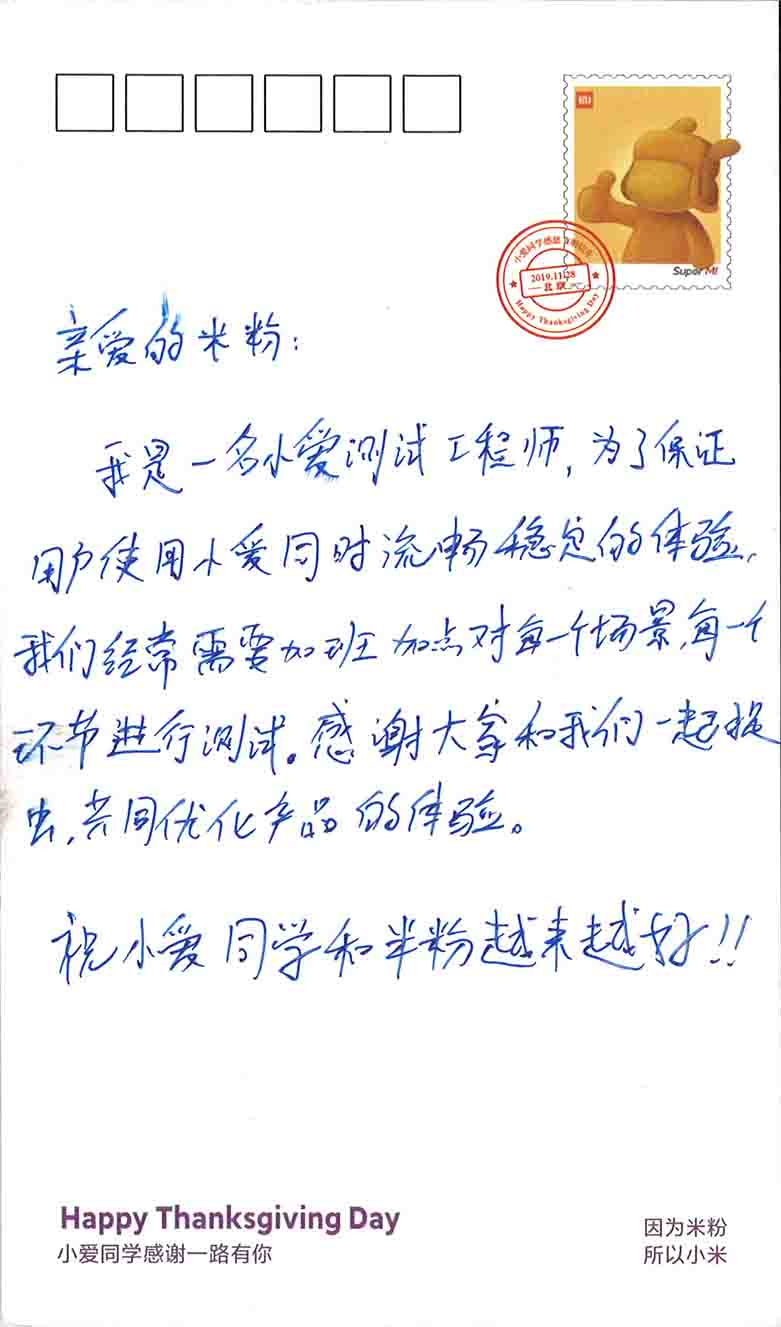 MI
Super MI
小爱同学感恩
2019.11.28
北京
Happy Thanksgiving Day
亲爱的米粉:
我是一名小爱测试工程师,为了保证
用户使用小爱同时流畅稳定的体验,
我们经常需要加班加点对每一个场景,每一个
环节进行测试。感谢大家和我们一起捉
虫,共同优化产品的体验。
祝小爱同学和米粉越来越好!!
Happy Thanksgiving Day
小爱同学感谢一路有你
因为米粉
所以小米